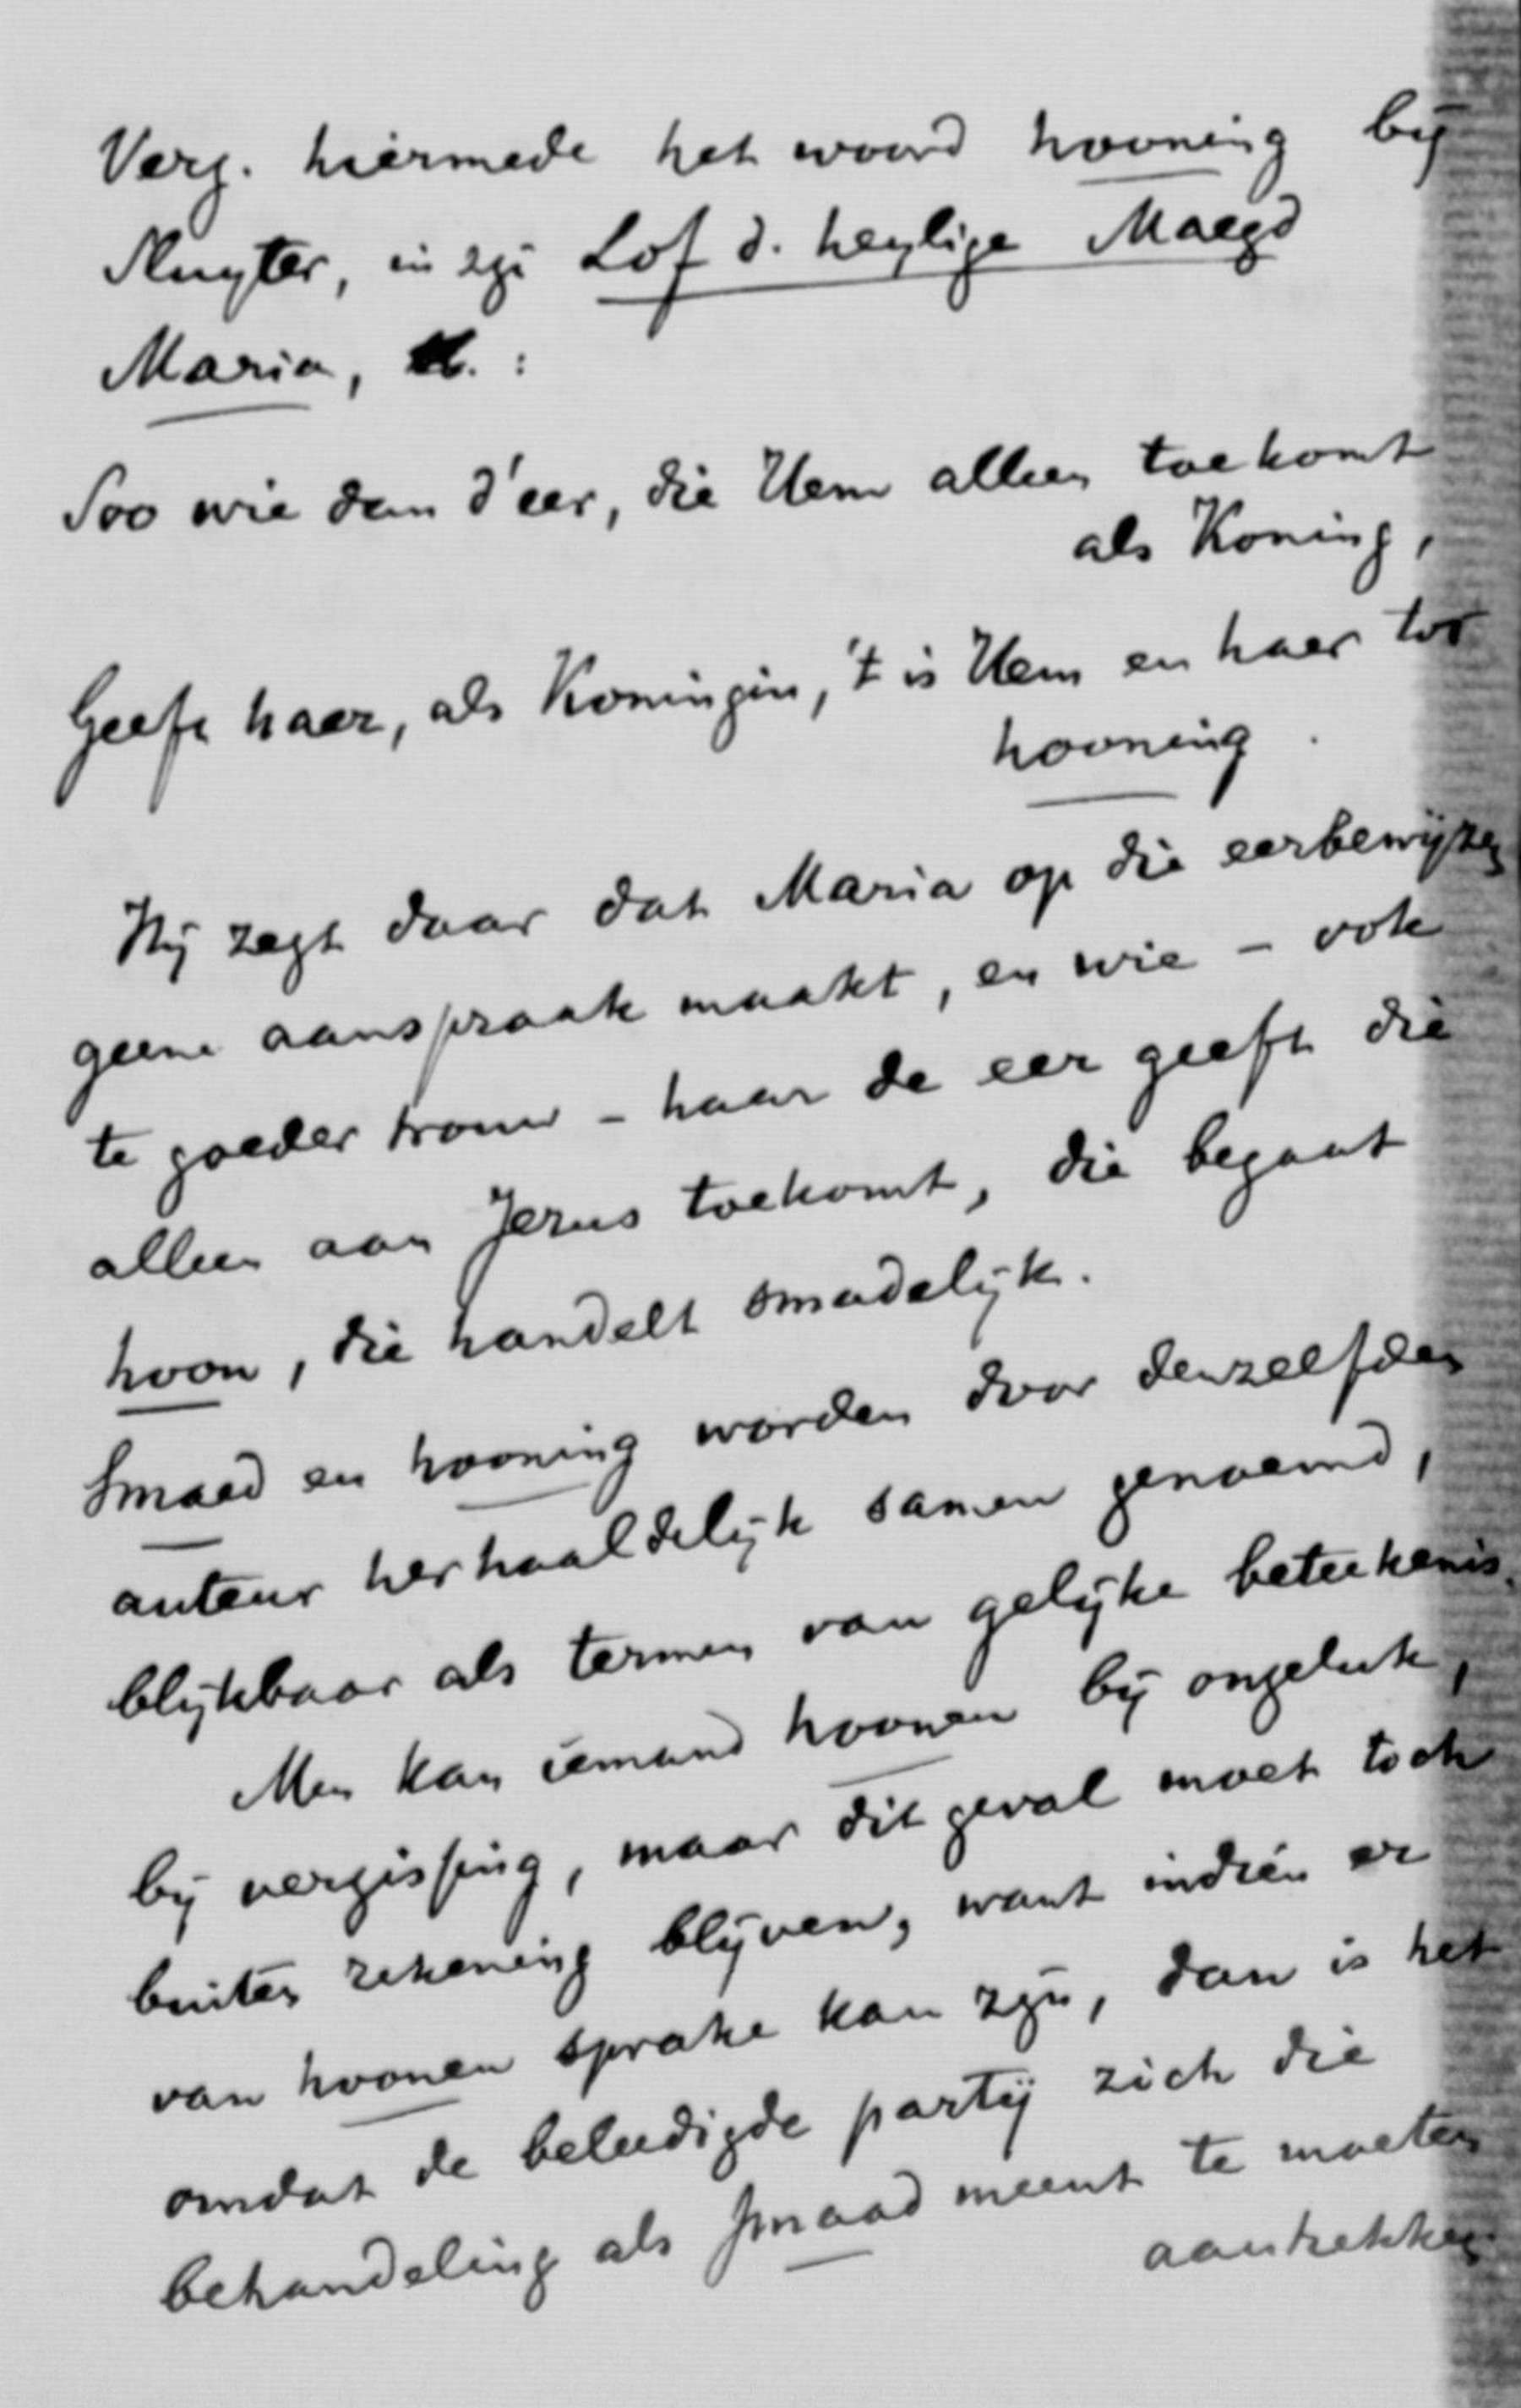 Verg. hiermede het woord hooning bij
Sluyter, in zijn Lof d. heylige Maegd
Maria, :
Soo wie dan d'eer, die Hem alleen toekomt
als Koning,
Geeft haer, als Koningin, 't is Hem en haer tot
hooning.
Hij zegt daar dat Maria op die eerbewijzen
geene aanspraak maakt, en wie – ook
te goeder trouw – haar de eer geeft die
alleen aan Jezus toekomt, die begaat
hoon, die handelt smadelijk.
Smaed en hooning worden door denzelfden
auteur herhaaldelijk samen genoemd,
blijkbaar als termen van gelijke beteekenis.
Men kan iemand hoonen bij ongeluk,
bij vergissing, maar dit geval moet toch
buiten rekening blijven, want indien er
van hoonen sprake kan zijn, dan is het
omdat de beleedigde partij zich die
behandeling als smaad meent te moeten
aantrekken.